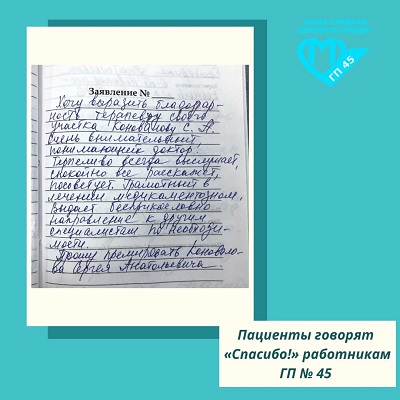 ГП 45
Заявление №
Хочу выразить благодар-
ность терапевту своего
участка Коновалову С. А.
Очень внимательный
понимающий доктор!
Терпеливо всегда выслушает,
спокойно все расскажет,
посоветует. Грамотный в
лечении медикаментозном,
выдает беспрекословно
направление к другим
специалистам по необходи-
мости.
Прошу премировать Коновало-
ва Сергея Анатольевича.
Пациенты говорят
«Спасибо!» работникам
ГП № 45